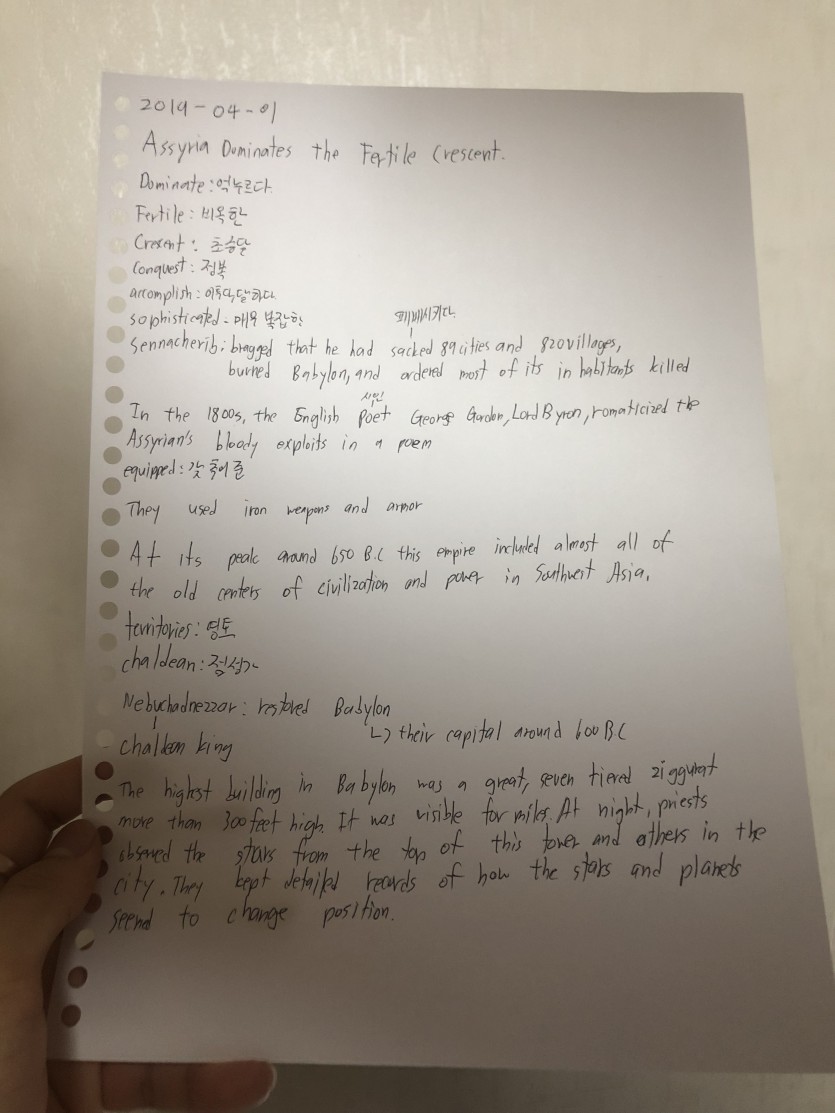 2019-04-01
Assyria Dominates the Fertile Crescent.
Dominate : 억누르다
Fertile : 비옥한
Cresent : 초승달
Conquest : 정복
accomplish : 하다
sophisticated - 매우 복잡한
Sennacherib : bragged that he had sacked 89 cities and 820 villages,
burned Babylon, and ordered most of its inhabitants killed
시인
In the 1800s, the English Poet George Gordon, Lord Byron, romaticized the
Assyrian's bloody exploits in a poem
equipped : 갖추어준
They used iron weapons and armor
At its peak around 650 B.C this empire included almost all of
the old centers of civilization and power in Southwest Asia.
territories : 영토
chaldean : 점성가
Nebuchadnezzar : restored Babylon
↳ their capital around 600 B.C
Chaldean king
The highest building in Babylon was a great, seven tiered ziggurat
more than 300 feet high. It was visible for miles. At night, priests
observed the stars from the top of this tower and others in the
city. They kept detailed records of how the stars and planets
to change position.